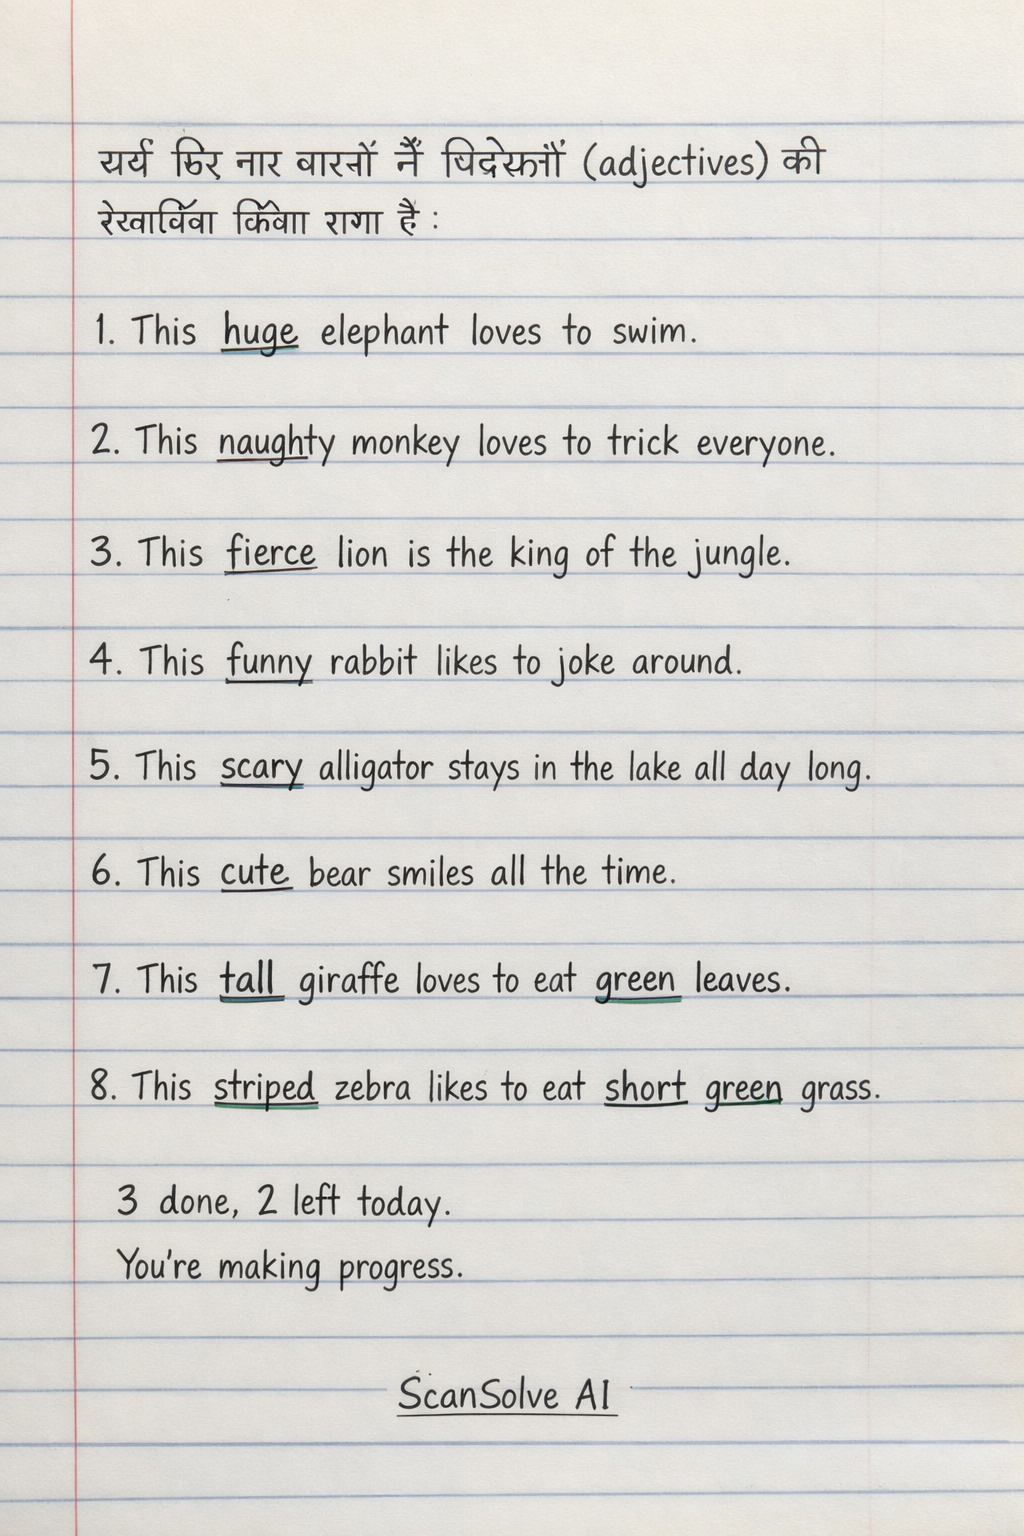 यर्य छिर नार वारनों नैं चिद्रेफनौं (adjectives) की
रेखार्विवा किंवेाा रागा है :
1. This huge elephant loves to swim.
2. This naughty monkey loves to trick everyone.
3. This fierce lion is the king of the jungle.
4. This funny rabbit likes to joke around.
5. This scary alligator stays in the lake all day long.
6. This cute bear smiles all the time.
7. This tall giraffe loves to eat green leaves.
8. This striped zebra likes to eat short green grass.
3 done, 2 left today.
You're making progress.
ScanSolve AI